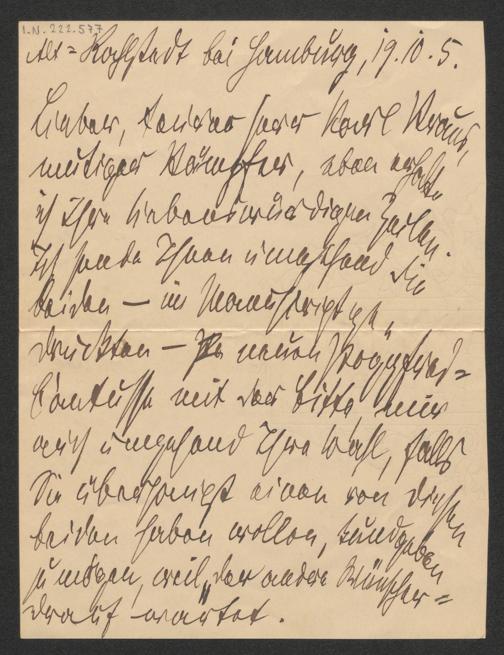 I.N. 222.577
Alt=Rahlstedt bei Hamburg, 19.10.5.
Lieber, teurer Herr Karl Kraus,
mutiger Kämpfer, eben erhalte
ich Ihre liebenswürdigen Zeilen.
Ich sende Ihnen umgehend die
beiden – im Manuskript ge„
druckten – neuen Poggfred=
Cantusse mit der Bitte, mir
auch umgehend Ihre Wahl, falls
Sie überhaupt einen von diesen
beiden haben wollen, kundgeben
zu mögen, weil „der andere
drauf wartet.